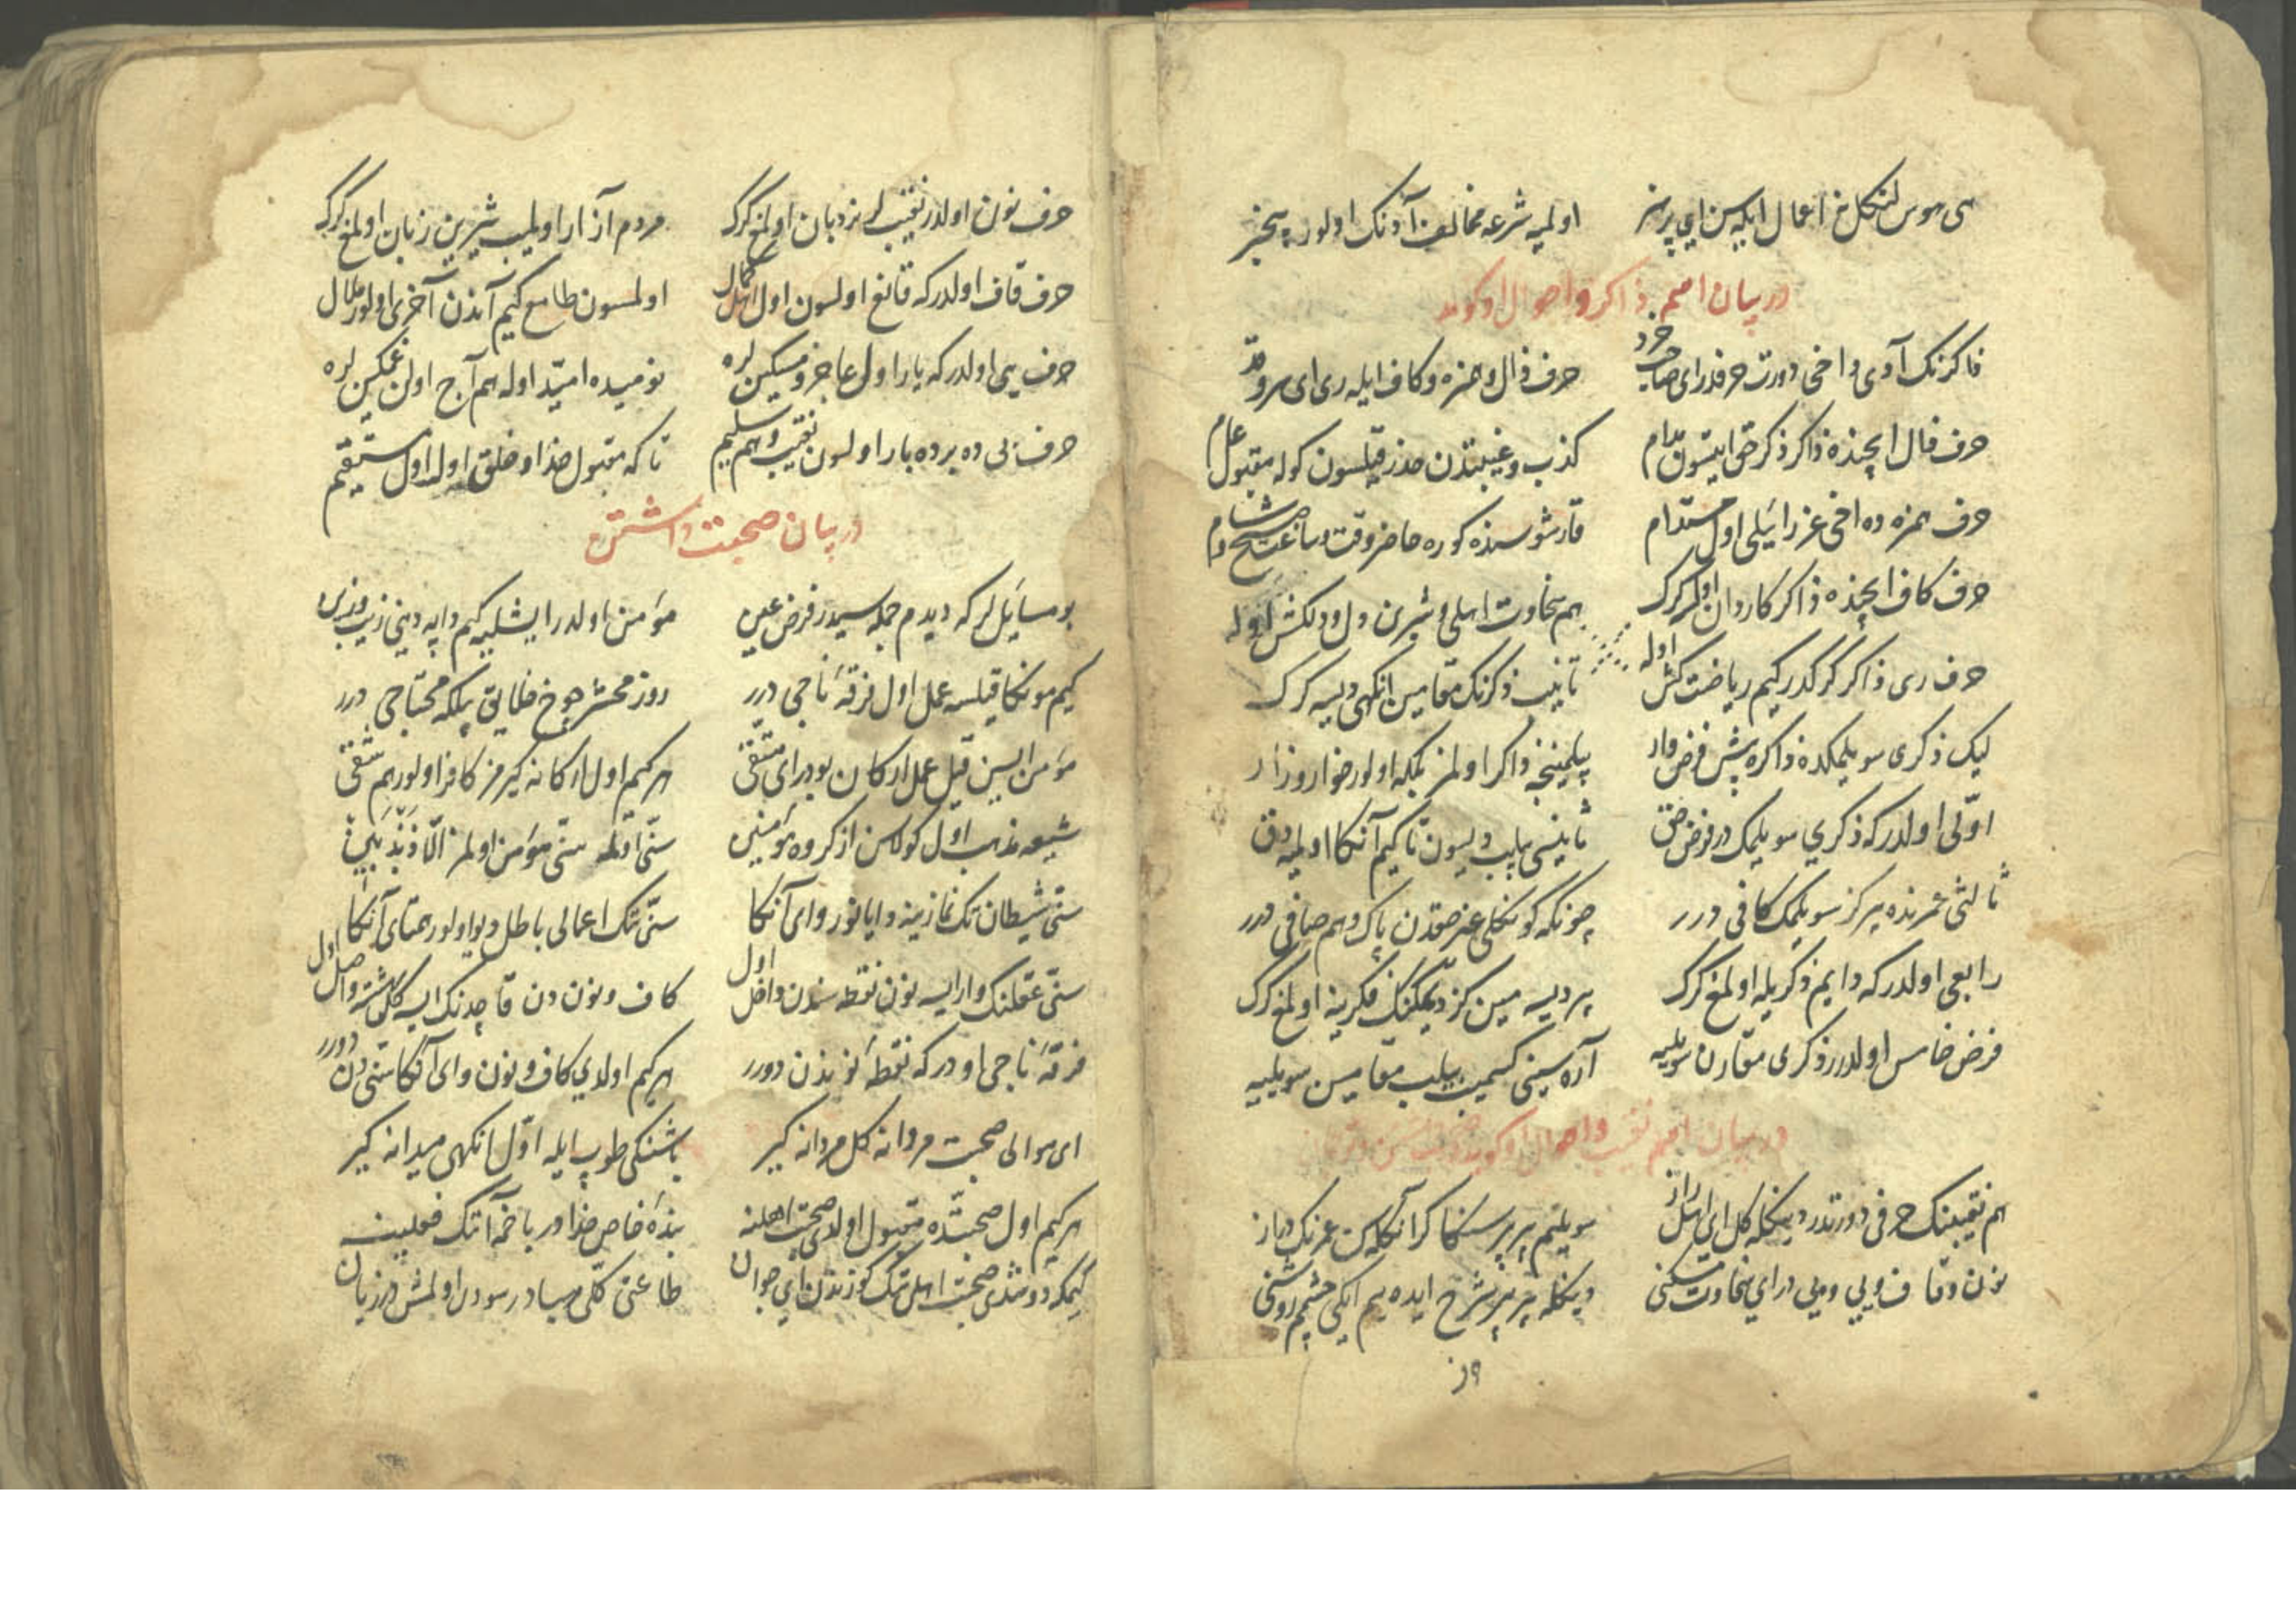 سی هوس لنکل اعمال ایله سن ای پر هنر اولمیه شرعه مخالف آدنک اولور بیخبر
در بیان اسم ذاکر و احوال او کوید
ذاکرنک آدی داخی دورت حرفدر ای صاحب خرد حرف ذال و همزه و کاف ایله ری ای سروقد
حرف ذال ایچنده ذاکر ذکر حق ایتسون مدام کذب و غیبتدن حذر قیلسون کوله مقبول عام
حرف همزه ده اخی عزرائیلی اول مستدام قارشوسنده کوره حاضر وقت و ساعت صبح و شام
حرف کاف ایچنده ذاکر کاردان اولمق کرک هم سخاوت اهلی و شیرین دل و دلکش اوله
حرف ری ذاکر کرکدر کیم ریاضت کش اوله تانیب ذکرنک مقامین انکهی دیسه کرک
لیک ذکری سویلمکده ذاکره بش فرض وار بیلمینجه ذاکر اولمز بلکه اولور خوار و زار
اوّلی اولدر که ذکری سویلمک در فرض حق ثانیسی بیلیب دیسون تا کیم آنکا اولمیه دق
ثالثی عمرنده بیر کز سویلمک کافی درر چونکه کونکلی غیر حقدن پاک و هم صافی درر
رابعی اولدر که دایم ذکریله اولمغ کرک بیر دیسه مین کز دیمکنک فکرینه اولمغ کرک
فرض خامس اولدر ذکری مقارن سویلیه آره سینی کسمیب بیلیب مقامین سویلییه
در بیان اسم نقیب و احوال او کوید
هم نقیبنک حرفی دورتدر دینکله کل ای اهل راز سویلیم بیر بیر سنکا کر آنکلاسن عمرنک دراز
نون و قاف و یی و بی در ای سخاوت مسکنی دینکله بیر بیر شرح ایده یم ایکی چشمم روشنی
حرف نون اولدر نقیب لر نردبان اولمغ کرک مردم آزار اولمیب شیرین زبان اولمغ کرک
حرف قاف اولدر که قانع اولسون اول اهل کمال اولمسون طامع کیم آندن آخری اولور ملال
حرف یی اولدر که یار اول عاجز و مسکین لره نومیده امید اوله هم آج اولن غمکین لره
حرف بی ده برده بار اولسون نقیب و هم سلیم تا که مقبول خدا و خلق اوله اول مستقیم
در بیان صحبت داشتن
بو مسائل لر که دیدم جمله سیدر فرض عین مؤمن اولدر ایشلییه کیم داپه دینی زیب و زین
کیم مونکا قیلسه عمل اول فرقهٔ ناجی درر روز محشر چوخ خلایق بلکه محتاجی درر
مؤمن ایسن قیل عمل ارکان بودر ای متقی هر کیم اول ارکانه کیرمز کافر اولور هم شقی
شیعه مذهب اول کولسن از کروه مؤمنین سنّی اوتلمه سنّی مؤمن اولمز الّا مذبذبین
سنّی شیطان تک نمازینه دایانور وای آنکا سنّی تک اعمالی باطل دیو اولور همتای آنکا
سنّی عقلنک وار ایسه نون نقطه سندن داخل اول کاف و نون دن قاچدنک ایسه کل شه واصل اول
فرقهٔ ناجی اودر که نقطهٔ نونذن دورر هر کیم اولدی کاف و نون وای آنکا سنّی دن دورر
ای موالی صحبت مردانه کل مردانه کیر باشنکی طوپ ایله اوّل انکهی میدانه کیر
هر کیم اول صحبتده مقبول اولدی صحبت اهلنه بندهٔ خاص خدادر باخمه آنک فعلینه
کیمکه دوشدی صحبت اهل تک کوزندن ای جوان طاعتی کلّی هبادر سودی اولمش در زیان